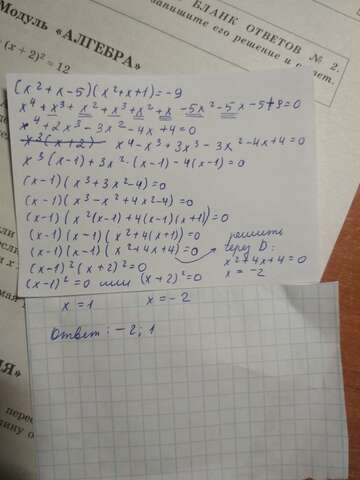 Модуль «АЛГЕБРА»
БЛАНК ОТВЕТОВ № 2.
запишите его решение и ответ.
(x+2)² = 12
(x²+x-5)(x²+x+1)=-9
x⁴+x³+x²+x³+x²+x-5x²-5x-5+9=0
x⁴+2x³-3x²-4x+4=0
x³(x+2) x⁴-x³+3x³-3x²-4x+4=0
x³(x-1)+3x²·(x-1)-4(x-1)=0
(x-1)(x³+3x²-4)=0
(x-1)(x³-x²+4x²-4)=0
(x-1)(x²(x-1)+4(x-1)(x+1))=0
(x-1)(x-1)(x²+4(x+1))=0
(x-1)(x-1)(x²+4x+4)=0
решить
через D:
x²+4x+4=0
x=-2
(x-1)²(x+2)²=0
(x-1)²=0 или (x+2)²=0
x=1 x=-2
Ответ: -2; 1